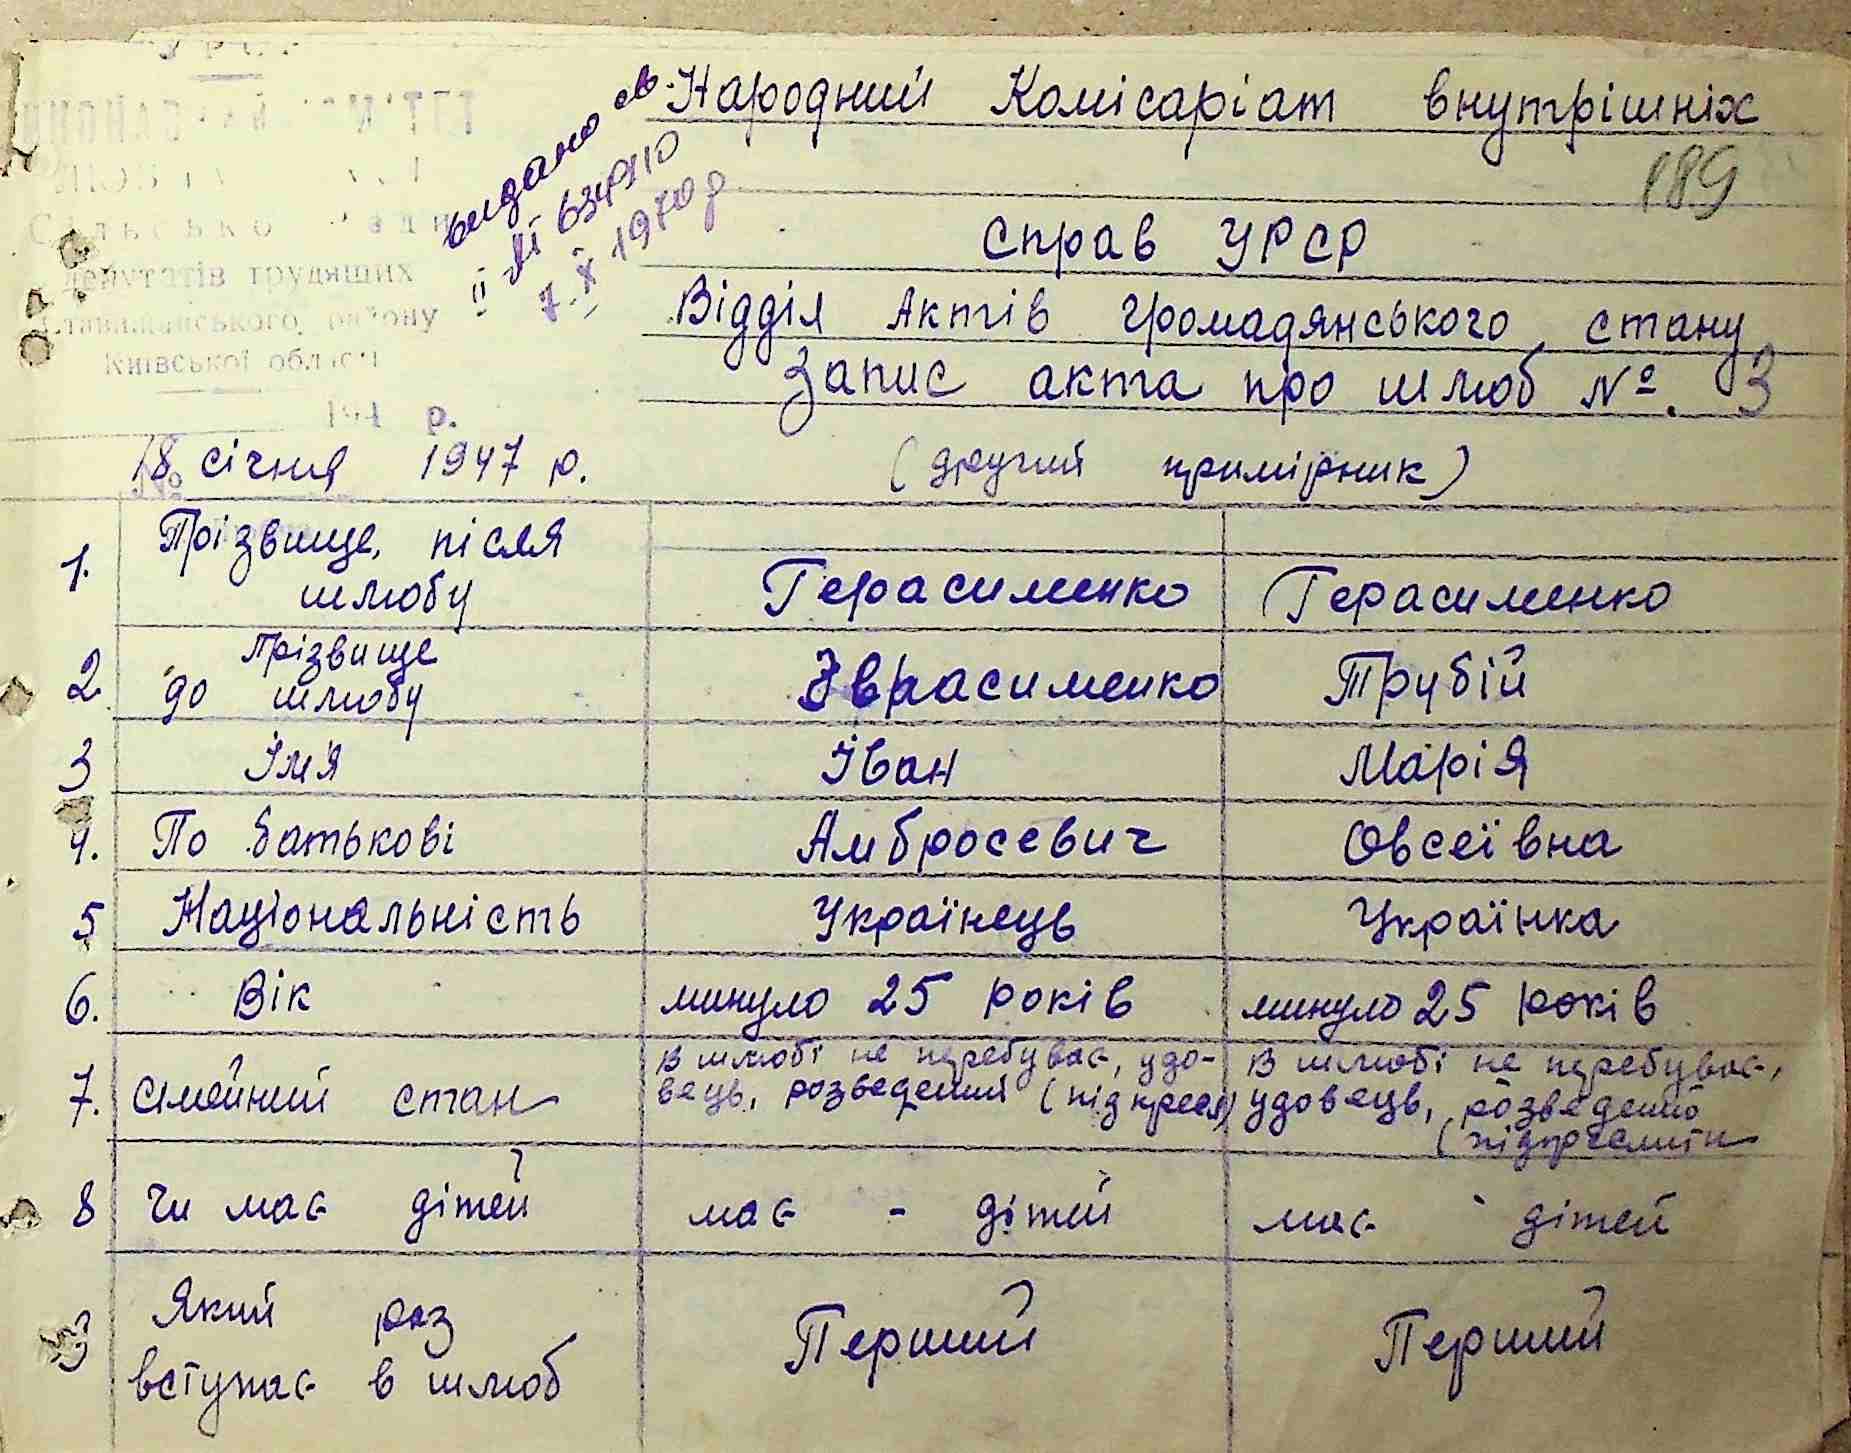 Народний Комісаріат внутрішніх
189
справ УРСР
Відділ Актів громадянського стану
Запис акта про шлюб №. 3
(другий примірник)
видано св.
7. X 1970 р
депутатів трудящих
району
Київської області
194 р.
18 січня 1947 р.
1. Прізвище, після шлюбу Герасименко Герасименко
2 Прізвище до шлюбу Герасименко Трубій
3 Ім'я Іван Марія
4. По батькові Амбросєвич Овсеївна
5 Національність Українець Українка
6. Вік минуло 25 років минуло 25 років
7. Сімейний стан В шлюбі не перебуває, удовець, розведений (підкресл) В шлюбі не перебуває, удовець, розведений
8 Чи має дітей має - дітей має дітей
9 Який раз вступає в шлюб Перший Перший